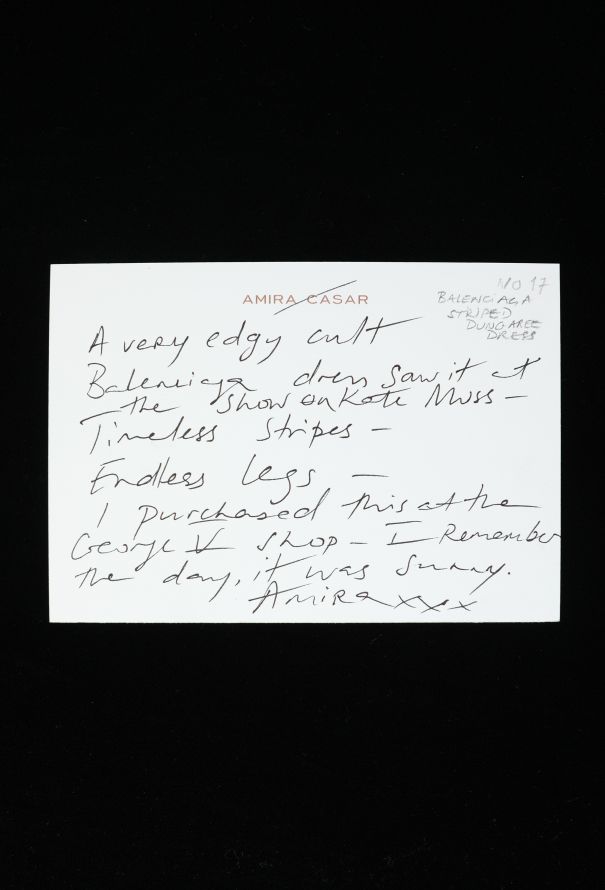 AMIRA CASAR
NO 17
BALENCIAGA
STRIPED
DUNGAREE
DRESS
A very edgy cult
Balenciaga dress saw it at
the show on Kate Moss –
Timeless stripes –
Endless legs –
I purchased this at the
George V shop – I Remember
the day, it was sunny.
Amira xxx